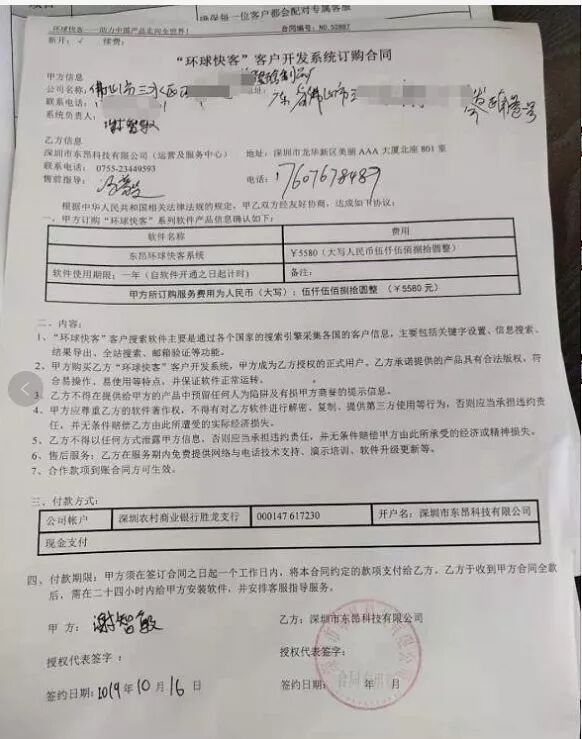 确保每一位客户都会配对专属客服
环球快客——助力中国产品走向全世界！ 合同编号：NO.50887
新开：√ 续费：
“环球快客”客户开发系统订购合同
甲方信息
公司名称：佛山市三水区 地址：广东省佛山市三
联系电话：
系统负责人：谢智敏
乙方信息
深圳市东昂科技有限公司（运营及服务中心） 地址：深圳市龙华新区美丽 AAA 大厦北座 801 室
联系电话：0755-23449593
售前指导： 电话：17607678489
根据中华人民共和国相关法律法规的规定，甲乙双方经友好协商，达成如下协议：
一、甲方订购“环球快客”系列软件产品信息确认如下：
软件名称 费用
东昂环球快客系统 ￥5580（大写人民币伍仟伍佰捌拾圆整）
软件使用期限：一年（自软件开通之日起计时） 备注：
甲方所订购服务费用为人民币（大写）：伍仟伍佰捌拾圆整 （￥5580 元）
二、内容：
1、“环球快客”客户搜索软件主要是通过各个国家的搜索引擎采集各国的客户信息，主要包括关键字设置、信息搜索、
结果导出、全站搜索、邮箱验证等功能。
2、甲方购买乙方“环球快客”客户开发系统，甲方成为乙方授权的正式用户。乙方承诺提供的产品具有合法版权，符
合易操作、易使用等特点，并保证软件正常运转。
3、乙方不得在提供给甲方的产品中预留任何人为陷阱及有损甲方商誉的提示信息。
4、甲方应尊重乙方的软件著作权，不得有对乙方软件进行解密、复制、提供第三方使用等行为，否则应当承担违约责
任，并无条件赔偿乙方由此所遭受的实际经济损失。
5、乙方不得以任何方式泄露甲方信息，否则应当承担违约责任，并无条件赔偿甲方由此所承受的经济或精神损失。
6、售后服务：乙方在服务期内免费提供网络与电话技术支持、演示培训、软件升级更新等。
7、合作款项到账合同方可生效。
三、付款方式：
公司帐户 深圳农村商业银行胜龙支行 000147 617230 开户名：深圳市东昂科技有限公司
现金支付
四、付款期限：甲方须在签订合同之日起一个工作日内，将本合同约定的款项支付给乙方。乙方于收到甲方合同全款
后，需在二十四小时内给甲方安装软件，并安排客服指导服务。
甲 方：谢智敏 乙方：深圳市东昂科技有限公司
授权代表签字： 授权代表签字：
合同专用章
签约日期：2019年10月16日 签约日期： 年 月